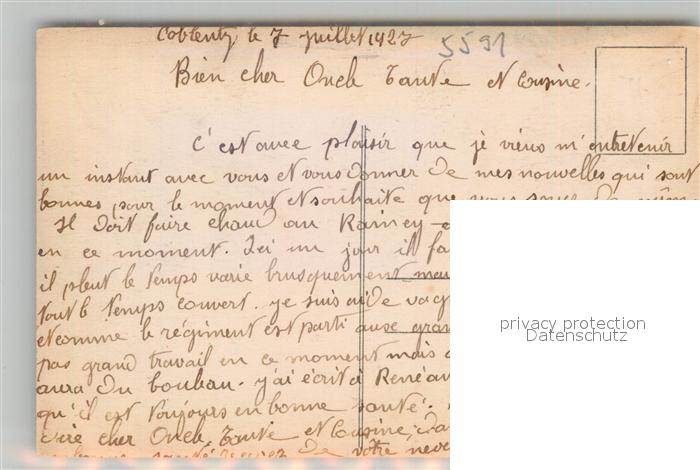 Coblentz le 7 juillet 1927
5591
Bien cher Oncle Tante et Cousine.
C'est avec plaisir que je viens m'entretenir
un instant avec vous et vous donner de mes nouvelles qui sont
bonnes pour le moment et souhaite que vous soyez de même
Il doit faire chaud au Raincy
en ce moment. Ici un jour il fa
il pleut le temps varie brusquement mai
tout le temps couvert. je suis aide
et comme le régiment est parti aux gran
pas grand travail en ce moment mais
aura du bouleau. j'ai écrit à René
qu'il est toujours en bonne santé.
cher Oncle, Tante et Cousine,
santé recevez de votre neve
privacy protection
Datenschutz